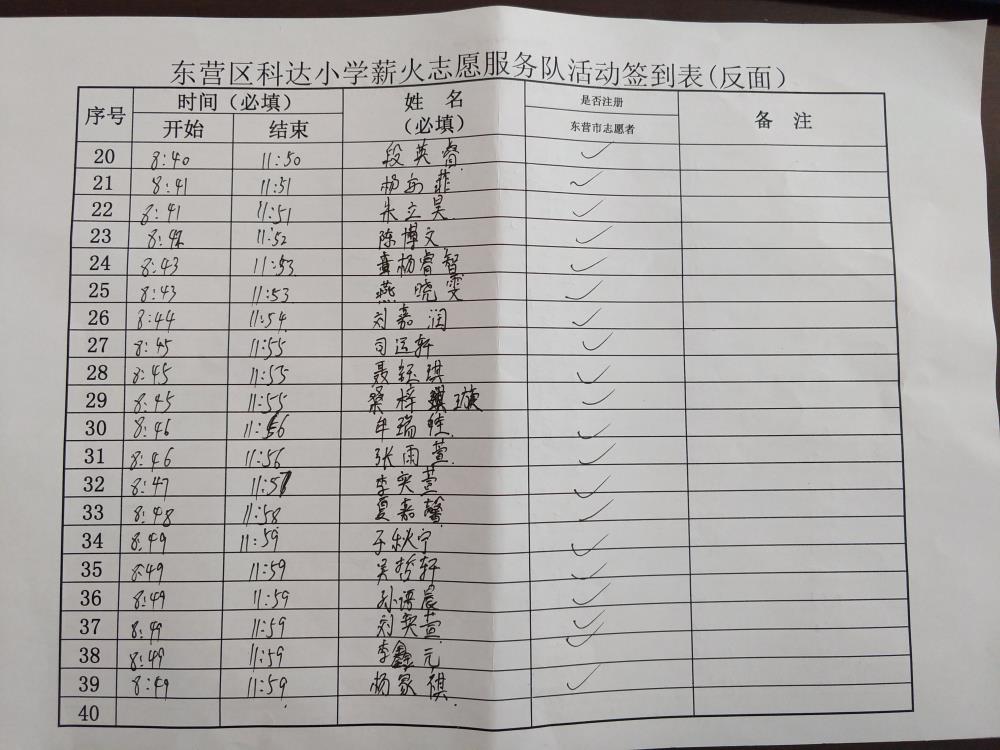 东营区科达小学薪火志愿服务队活动签到表(反面)
序号 时间(必填) 姓 名 (必填) 是否注册 东营市志愿者 备 注
开始 结束
20 8:40 11:50 段英睿 ✓
21 8:41 11:51 杨 菲 ✓
22 8:41 11:51 朱立昊 ✓
23 8:42 11:52 陈博文 ✓
24 8:43 11:53 黄杨睿智 ✓
25 8:43 11:53 燕晓雯 ✓
26 8:44 11:54 刘嘉润 ✓
27 8:45 11:55 司运轩 ✓
28 8:45 11:55 聂钰琪 ✓
29 8:45 11:55 桑梓璇 ✓
30 8:46 11:56 牟瑞 ✓
31 8:46 11:56 张雨萱 ✓
32 8:47 11:57 李奕萱 ✓
33 8:48 11:58 夏嘉馨 ✓
34 8:49 11:59 于秋宁 ✓
35 8:49 11:59 吴哲轩 ✓
36 8:49 11:59 孙诺晨 ✓
37 8:49 11:59 刘奕萱 ✓
38 8:49 11:59 李鑫元 ✓
39 8:49 11:59 杨家祺 ✓
40